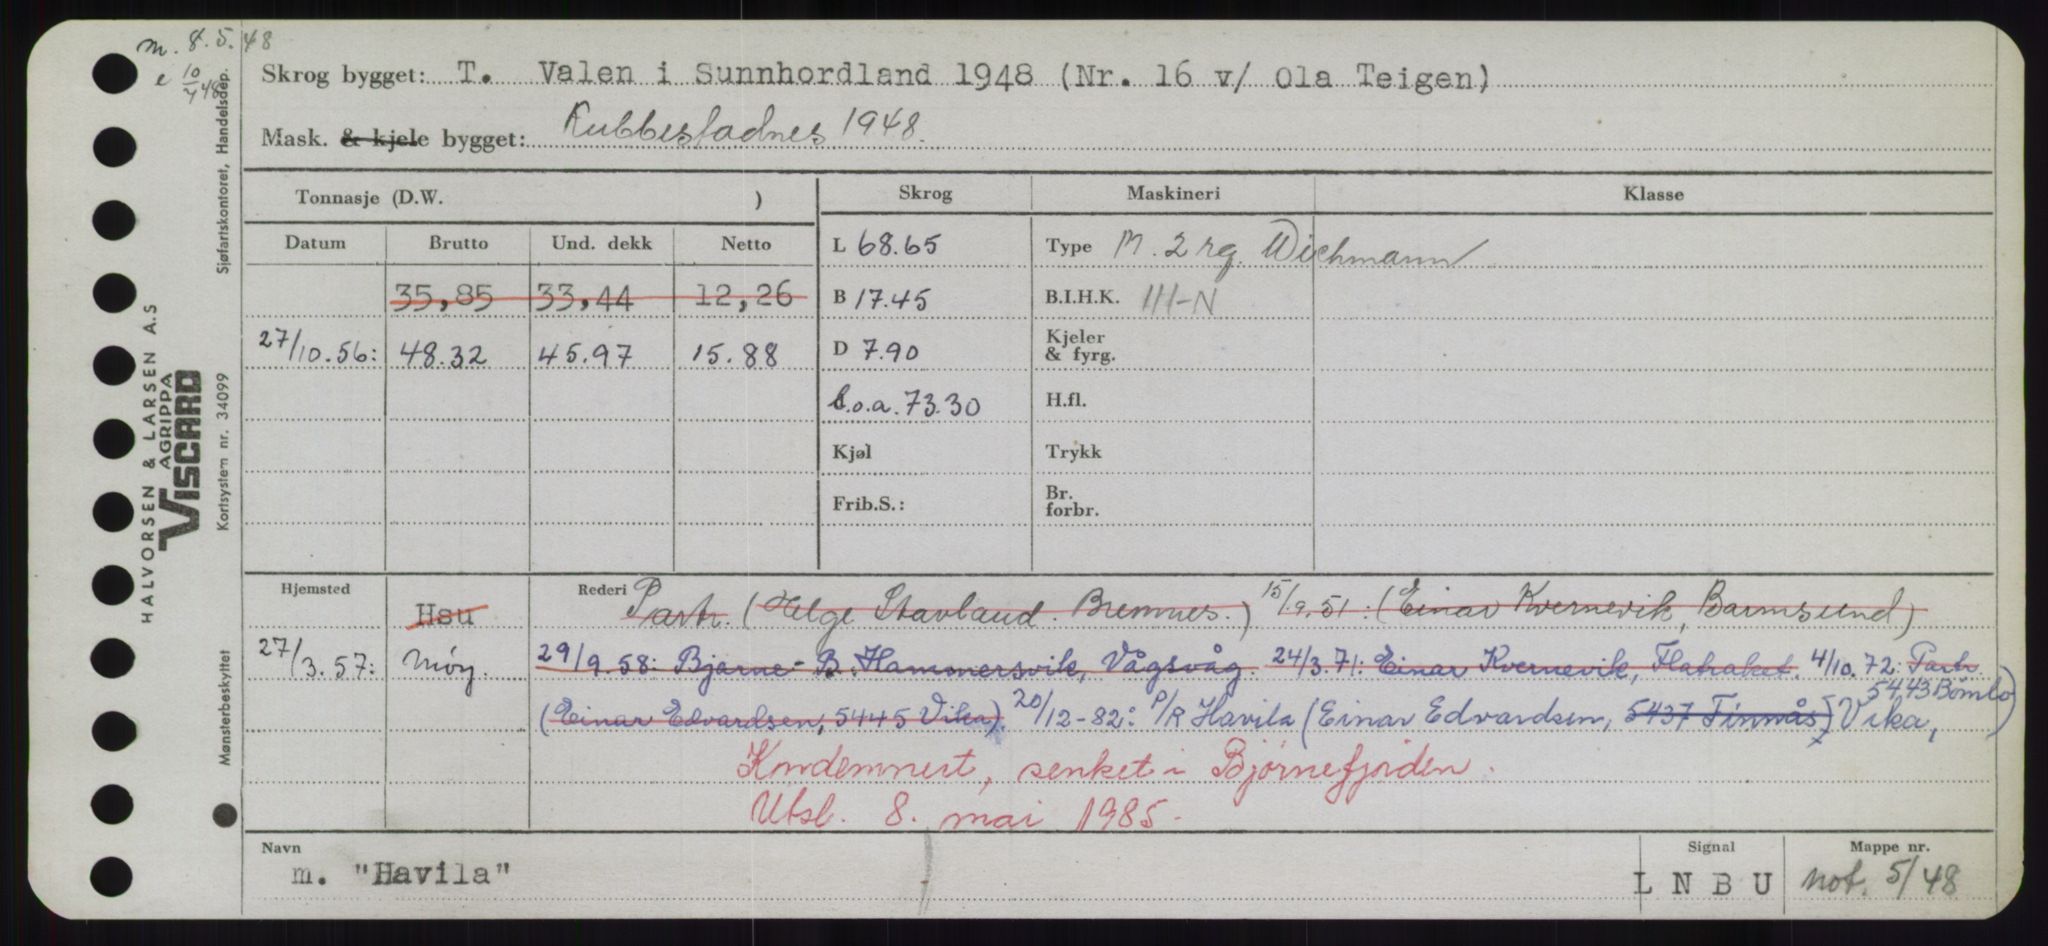 m. 8.5.48
e 10/4 48
Skrog bygget: T. Valen i Sunnhordland 1948 (Nr. 16 v/ Ola Teigen)
Mask. & kjele bygget: Rubbestadnes 1948.
Tonnasje (D.W. )
Skrog
Maskineri
Klasse
Datum
Brutto
Und. dekk
Netto
L 68.65
Type M. 2 rg. Wichmann
35,85 33,44 12,26
B 17.45
B.I.H.K. 111-N
27/10.56: 48.32 45.97 15.88
D 7.90
Kjeler
& fyrg.
l.o.a. 73.30
H.fl.
Kjøl
Trykk
Frib.S.:
Br.
forbr.
Hjemsted
Hsu
Rederi Partr. (Helge Stavland. Bremnes.) 15/9.51: (Einar Kvernevik, Barmsund)
27/3.57: Møy.
29/9.58: Bjarne B. Hammersvik, Vågsvåg. 24/3.71: Einar Kvernevik, Flatraket. 4/10.72: Partr.
(Einar Edvardsen, 5445 Vika). 20/12-82: P/R Havila (Einar Edvardsen, 5437 Finnås) Vika, 5443 Bømlo)
Kondemnert, senket i Bjørnefjorden.
Utsl. 8. mai 1985.
Navn
m. "Havila"
Signal
L N B U
Mappe nr.
not. 5/48
Sjøfartskontoret, Handelsdep.
HALVORSEN & LARSEN A.S
AGRIPPA
VISCARD
Kortsystem nr. 34099
Mønsterbeskyttet